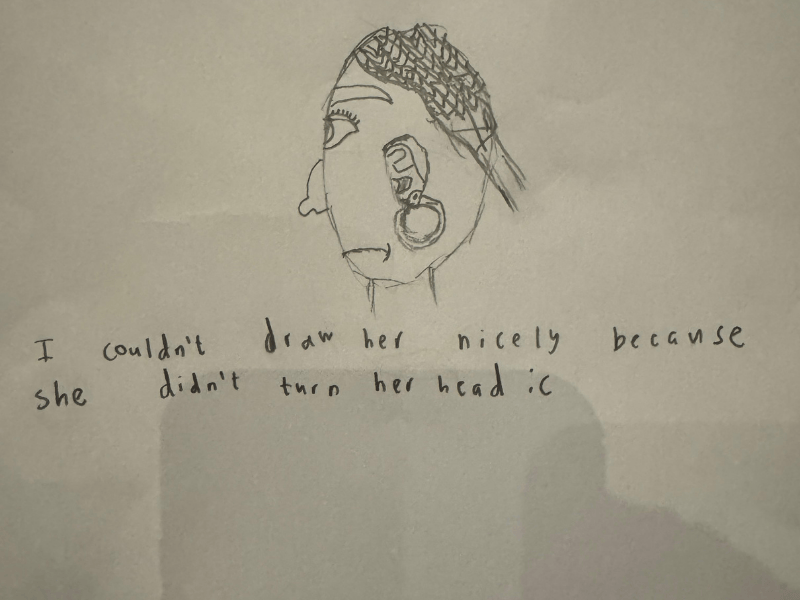 I couldn't draw her nicely because
she didn't turn her head :c